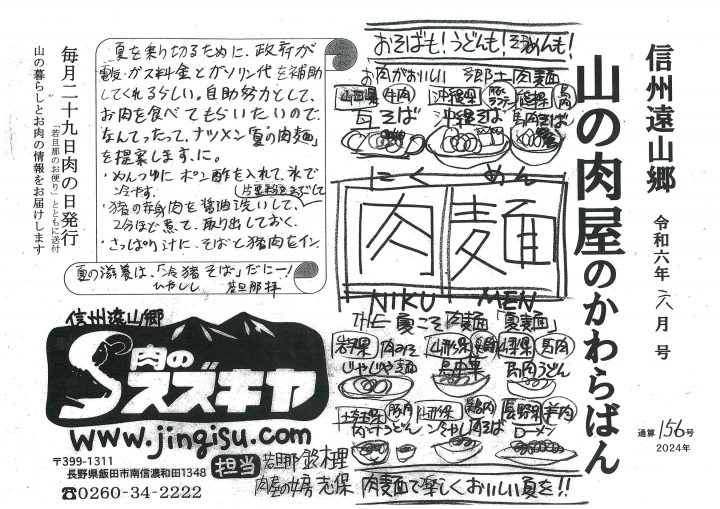 信州遠山郷
山の肉屋のかわらばん
令和六年 六月 号
通算 156号
2024年
おそばも！うどんも！そうめんも！
お肉がおいしい 郷土肉麺
山口県 牛肉 瓦そば
沖縄県 沖縄そば
馬肉 馬肉そば
にく めん
肉麺
NIKU MEN
THE 夏こそ 肉麺「夏麺」
岩手県 肉みそ じゃじゃ麺
山形県 鳥中華
馬肉 馬肉うどん
埼玉県 豚肉 肉汁うどん
山形県 鶏肉
長野県 羊肉 ローメン
肉麺で楽しくおいしい夏を！！
夏を乗り切るために、政府が
電気・ガス料金とガソリン代を補助
してくれるらしい。自助努力として、
お肉を食べてもらいたいので、
なんてったって、ナツメン「夏の肉麺」
を提案します、に。
・めんつゆに ポン酢を入れて、氷で
冷やす。
・猪の赤身肉を醤油洗いして、
2分ほど煮て、取り出しておく。
・さっぱり汁に、そばと猪肉をイン
夏の滋養は、「冷猪そば」だにー！
ひやしし 若旦那拝
毎月二十九日肉の日発行
（若旦那のお便り）とともに送付
山の暮らしとお肉の情報をお届けします
信州遠山郷
肉の
スズキヤ
www.jingisu.com
〒399-1311
長野県飯田市南信濃和田1348
☎0260-34-2222
担当
若旦那 鈴木理
肉屋の女房 志保